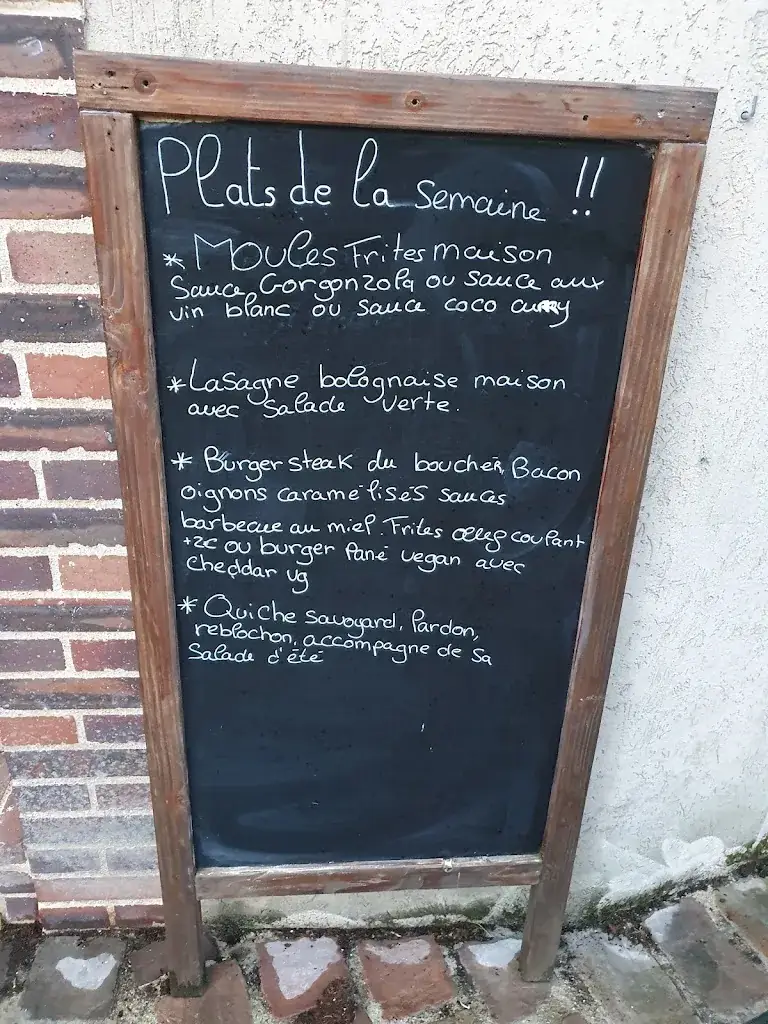 Plats de la semaine !!
* Moules Frites maison
Sauce Gorgonzola ou sauce aux
vin blanc ou sauce coco curry
* Lasagne bolognaise maison
avec salade verte.
* Burger steak du boucher, Bacon
oignons caramélisés sauces
barbecue au miel. Frites coupant
+2€ ou burger pané vegan avec
cheddar vg
* Quiche Savoyard, lardon,
reblochon, accompagne de sa
Salade d'été